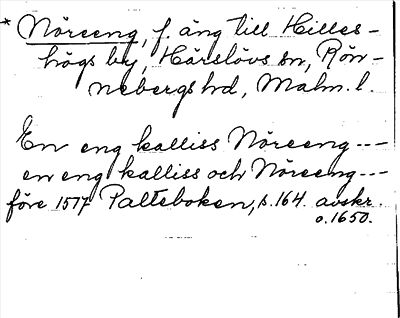 * Nöreeng, f. äng till Hilles-
högs by, Härslövs sn, Rön-
nebergs hd, Malm. l.
En eng kalliss Nöreeng ---
en eng kalliss och Nöreeng ---
före 1577 Palteboken, s. 164. avskr.
o. 1650.